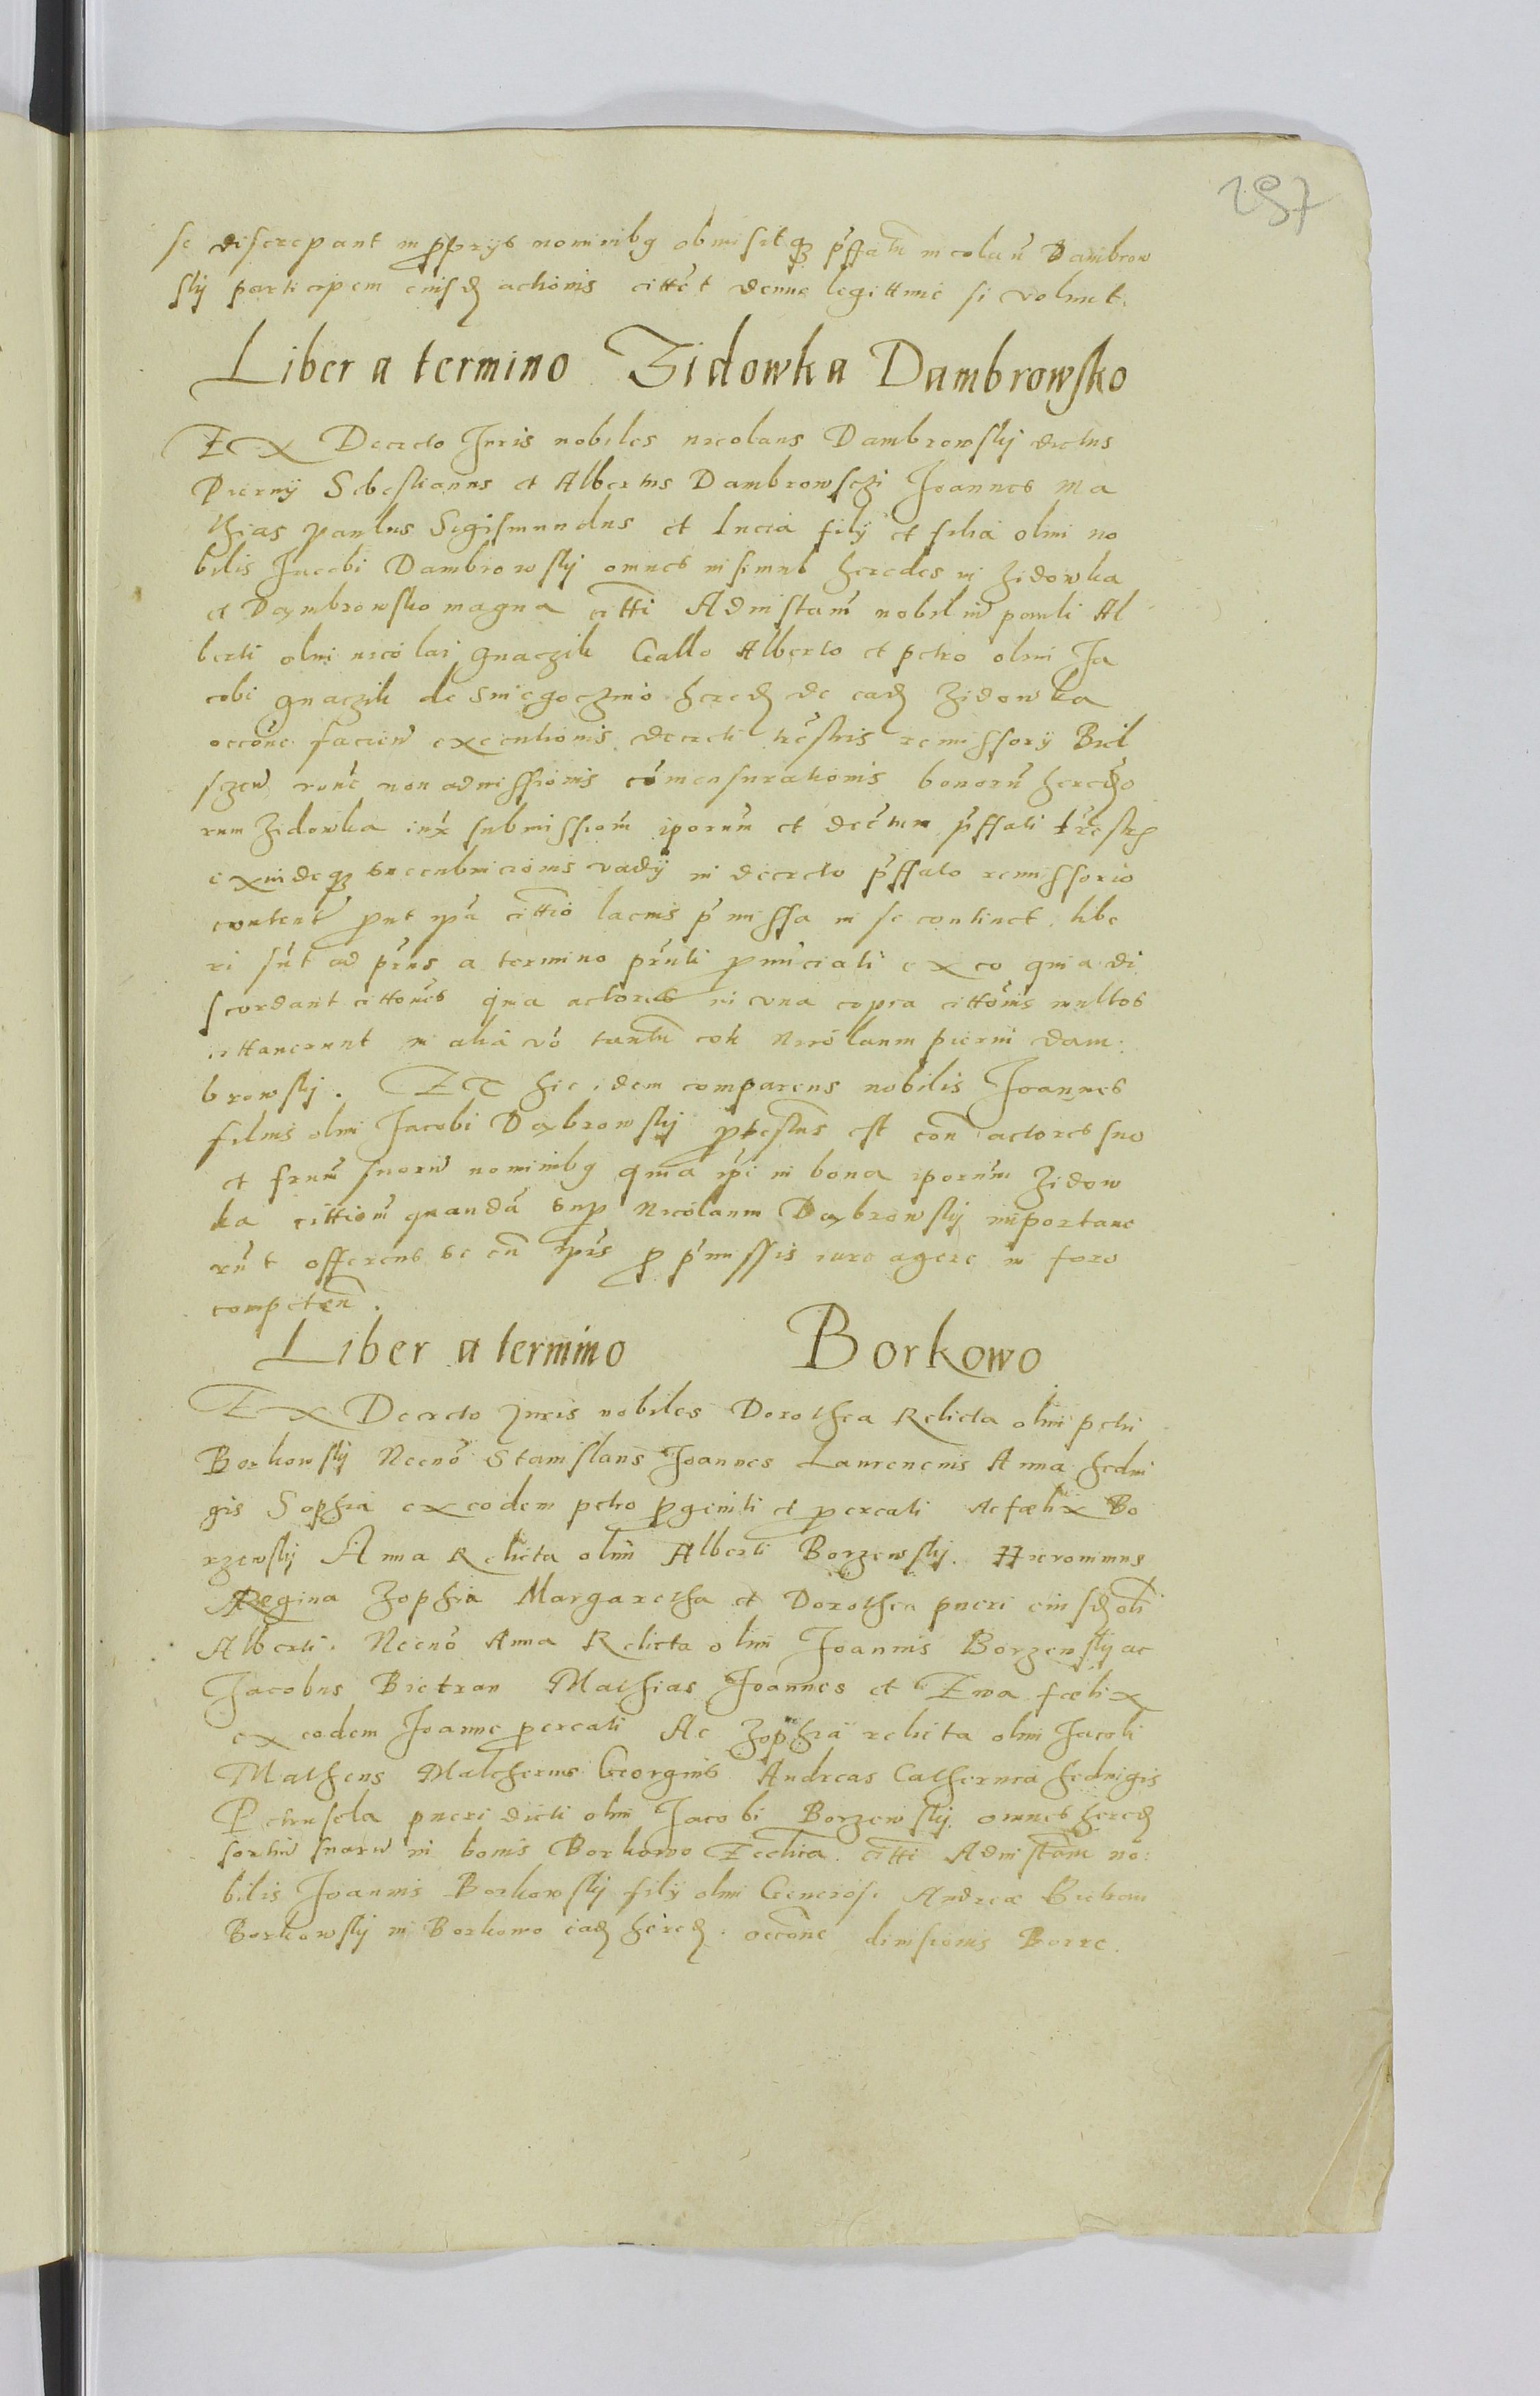 297
se discrepant in proprijs nominibq obmisitq3 pffatu nicolau Dambrow
skij participem eiusd actionis cittet denuo legittime si voluit.
Liber a termino Zidowka Dambrowsko
EX Decreto Juris nobiles nicolaus Dambrowskij dictus
Piernij Sebestianus et Albertus Dambrowsczi Joannes Ma
thias paulus Sigismundus et Lucia filij et filia olim no
bilis Jacobi Dambrowskij omnes insimul heredes in Zidowka
et Dąmbrowsko magna citti Ad instam nobiliu pauli Al
berti olim nicolai gnaczik Gallo Alberto et petro olim Ja
cobi gnaczik de Sniegoczino hered de ead Zidowka
occone faciew executionis decreti trestris remissorij Biel
szew rone non admissionis comensurationis bonoru heredo
rum Zidowka iux submissiom iporum et decum pffati trestr
exindeq3 succubuicionis vadij in decreto pffato remissorio
content put ipa cittio lacius pmissa in se continet. libe
ri sut ad prns a termino prnti pniciati ex eo quia di
scordant cittones quia actores in una copia cittonis multos
cittauerunt in alia vo tantu con Nicolaum piernii dam:
browskij. ET hic idem comparens nobilis Joannes
filius olim Jacobi Dąbrowskij ptestus est con actores suo
et frum suoru nominibq quia ipi in bona iporum Zidow
ka cittiom quanda sup Nicolaum Dąbrowskij importaue
rut offerens se cu ipis p pmissis iure agere in foro
competen.
Liber a termino Borkowo
EX Decreto Juris nobiles Dorothea Relicta olim petri
Borkowskij Necno Stanislaus Joannes Laurencius Anna hedui
gis Sophia ex eodem petro pgeniti et pcreati Ac fœlix Bo
rzewskij Anna Relicta olim Alberti Borzewskij. Hieronimus
Regina Zophia Margaretha et Dorothea pueri eiusd oli
Alberti. Necno Anna Relicta olim Joannis Borzewskij ac
Jacobus Bietran Mathias Joannes et Ewa fœlix
ex eodem Joanne pcreati Ac Zophia relicta olim Jacobi
Matheus Malcherus Georgius Andreas Catherina heduigis
Petrusela pueri dicti olim Jacobi Borzewskij omnes hered
sortiu suaru in bonis Borkowo Zechia. citti Ad instam no:
bilis Joannis Borkowskij filij olim Generosi Andreæ Bietran
Borkowskij in Borkowo ead hered. occone diuisionis Borre.